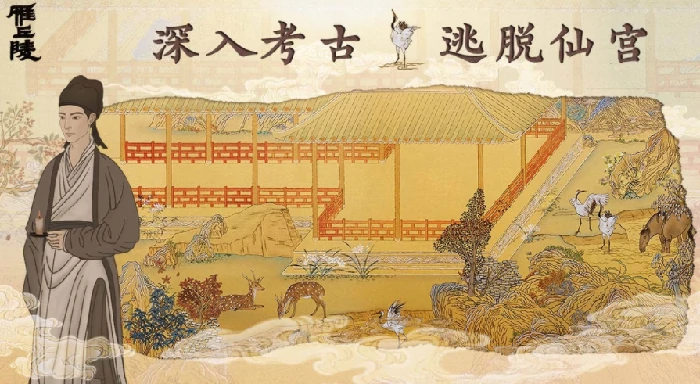 雁
丘
陵
深入考古 逃脱仙宫